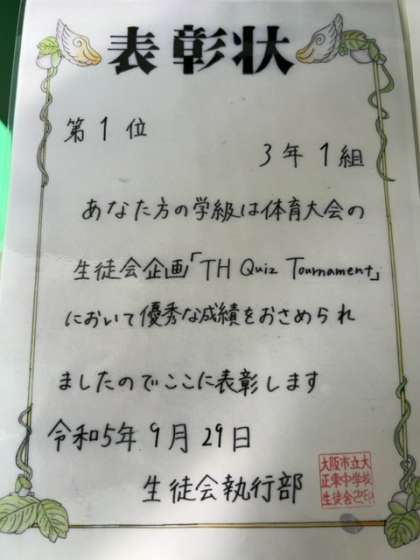 表彰状
第1位
3年1組
あなた方の学級は体育大会の
生徒会企画「TH Quiz Tournament」
において優秀な成績をおさめられ
ましたのでここに表彰します
令和5年9月29日
生徒会執行部
大阪市立大
正東中学校
生徒会